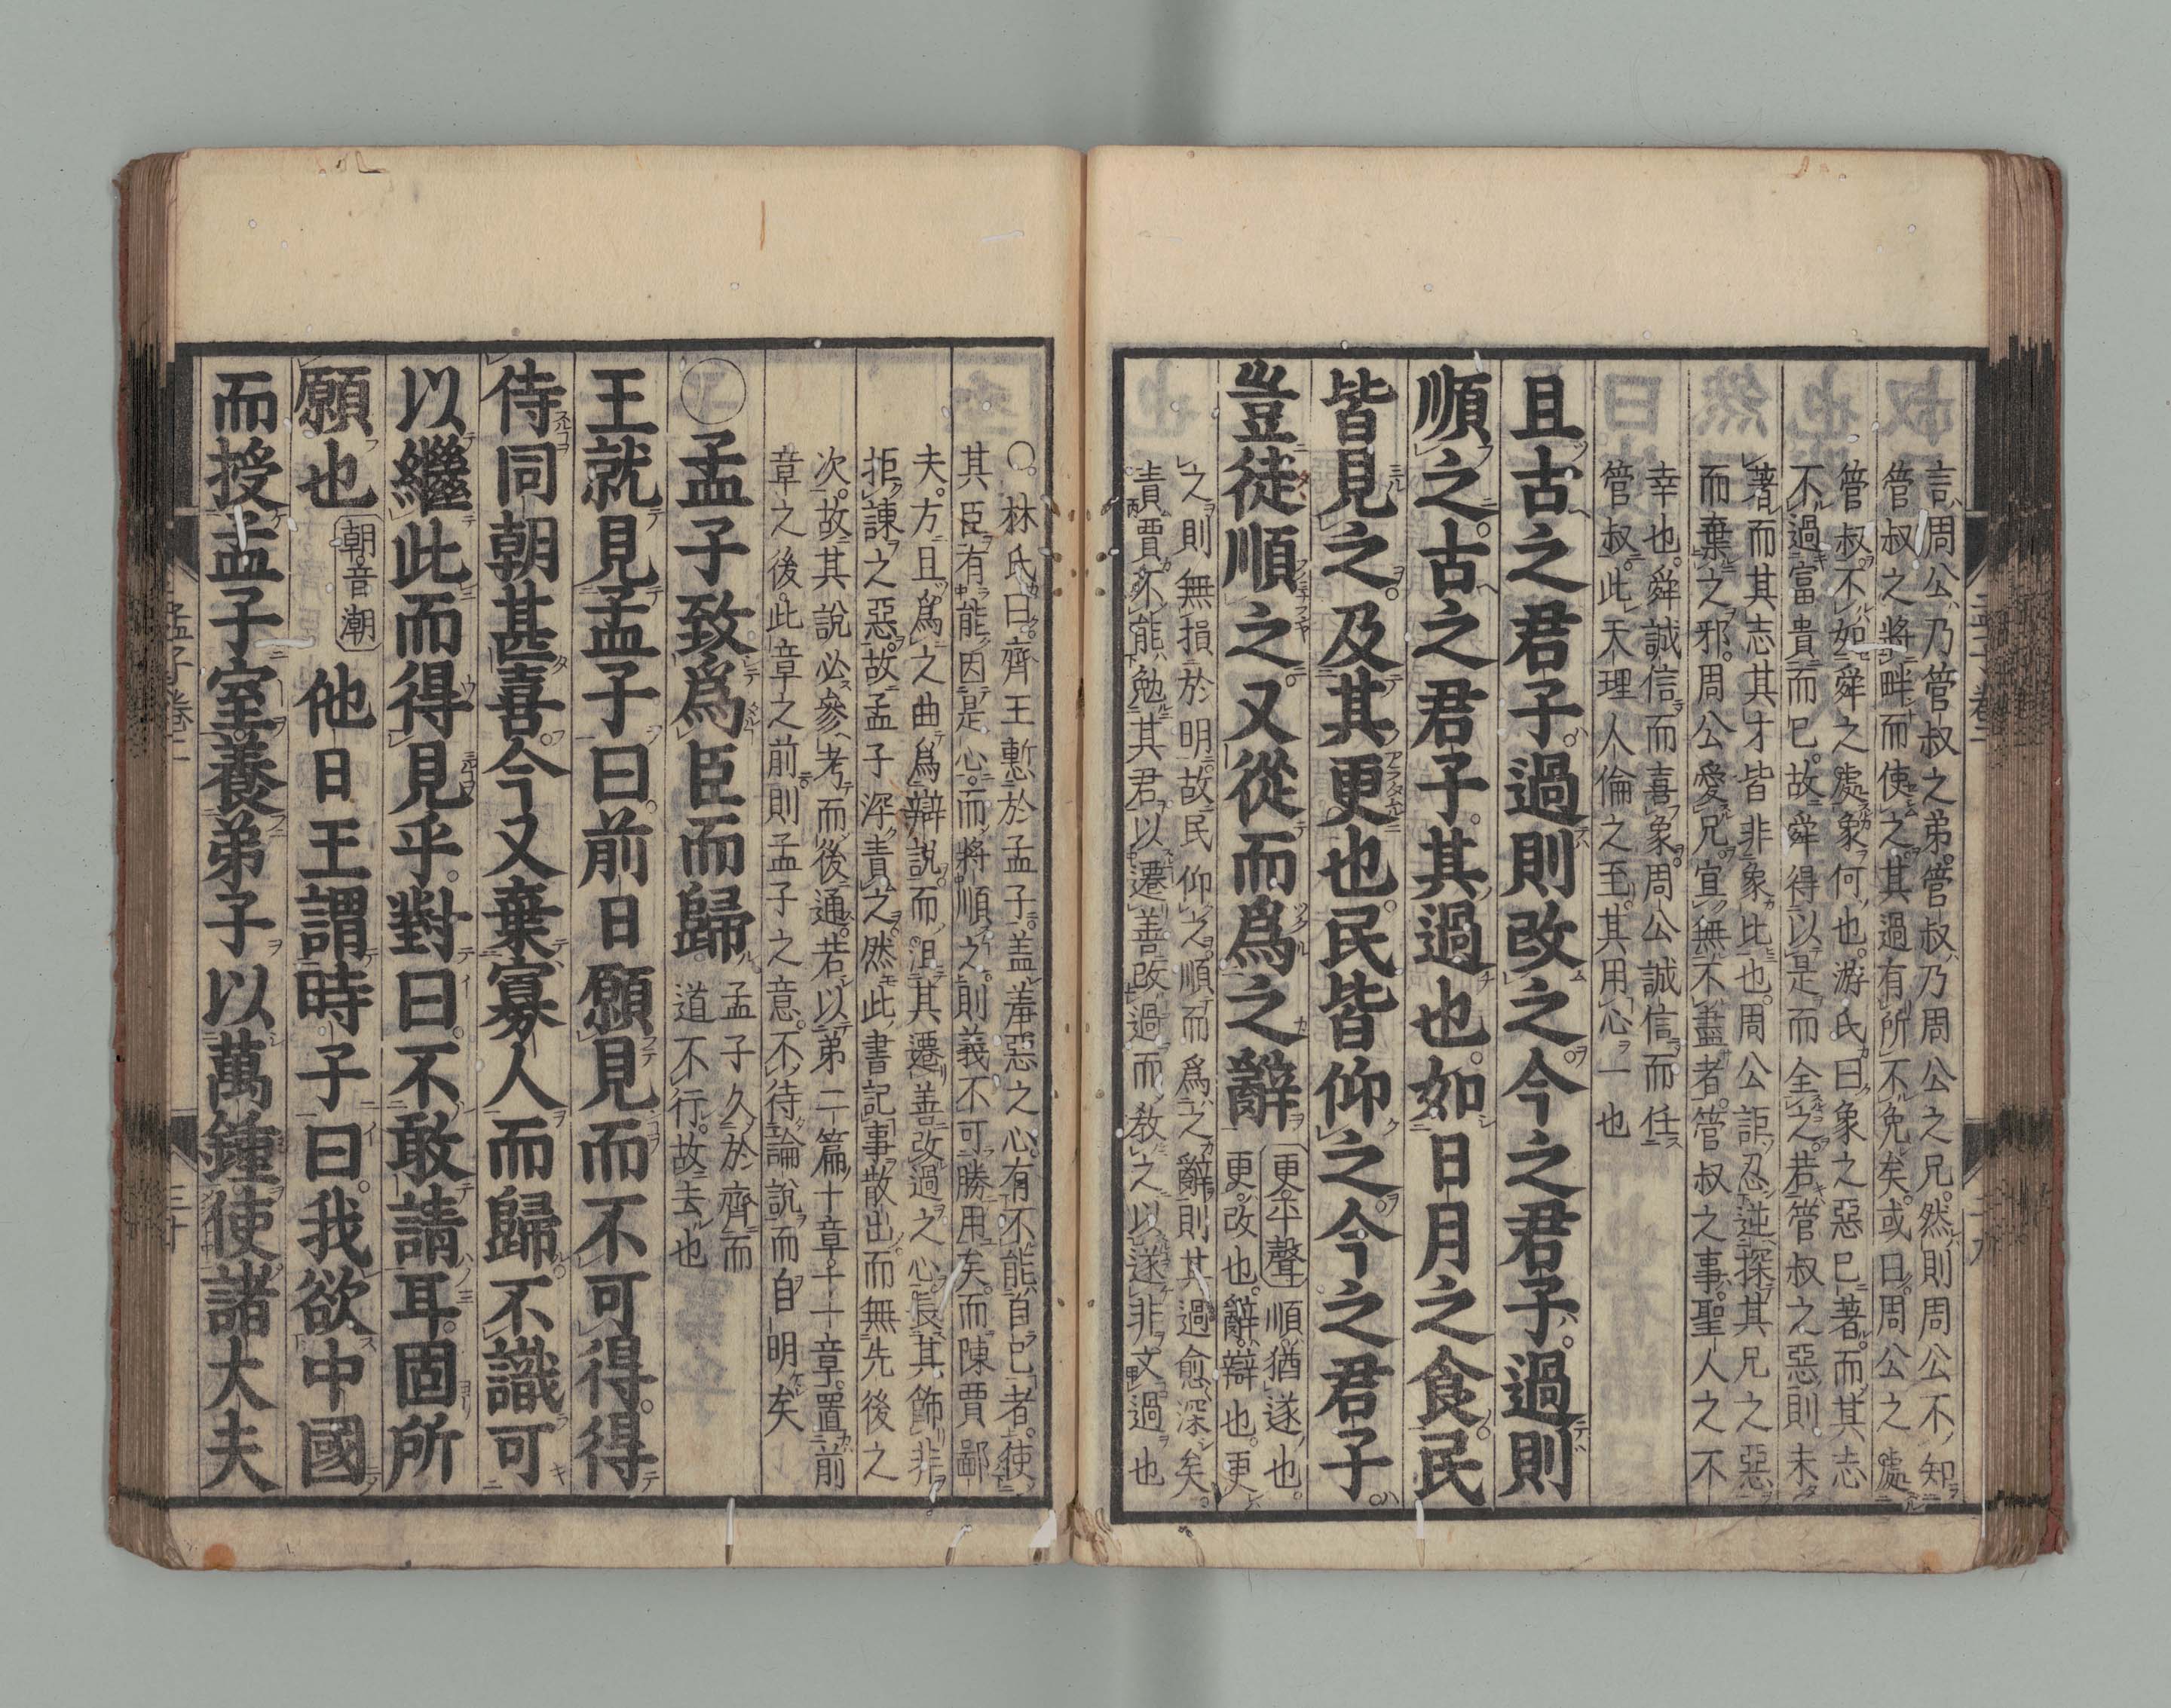 言周公乃管叔之弟管叔乃周公之兄然則周公不知
管叔之將畔而使之其過有所不免矣或曰周公之處
管叔不如舜之處象何也游氏曰象之惡已著而其志
不過富貴而已故舜得以是而全之若管叔之惡則未
著而其志其才皆非象比也周公詎忍逆探其兄之惡
而棄之邪周公愛兄宜無不盡者管叔之事聖人之不
幸也舜誠信而喜象周公誠信而任
管叔此天理人倫之至其用心一也
且古之君子過則改之今之君子過則
順之古之君子其過也如日月之食民
皆見之及其更也民皆仰之今之君子
豈徒順之又從而爲之辭
更平聲順猶遂也
更改也辭辯也更
之則無損於明故民仰之順而爲之辭則其過愈深矣
責賈不能勉其君以遷善改過而敎之以遂非文過也
○林氏曰齊王慙於孟子蓋羞惡之心有不能自已者使
其臣有能因是心而將順之則義不可勝用矣而陳賈鄙
夫方且爲之曲爲辯說而沮其遷善改過之心長其飾非
拒諫之惡故孟子深責之然此書記事散出而無先後之
次故其說必參考而後通若以第二篇十章十一章置前
章之後此章之前則孟子之意不待論說而自明矣
○孟子致爲臣而歸
孟子久於齊而
道不行故去也
王就見孟子曰前日願見而不可得得
侍同朝甚喜今又棄寡人而歸不識可
以繼此而得見乎對曰不敢請耳固所
願也
朝音潮
他日王謂時子曰我欲中國
而授孟子室養弟子以萬鍾使諸大夫
孟子卷二
三十